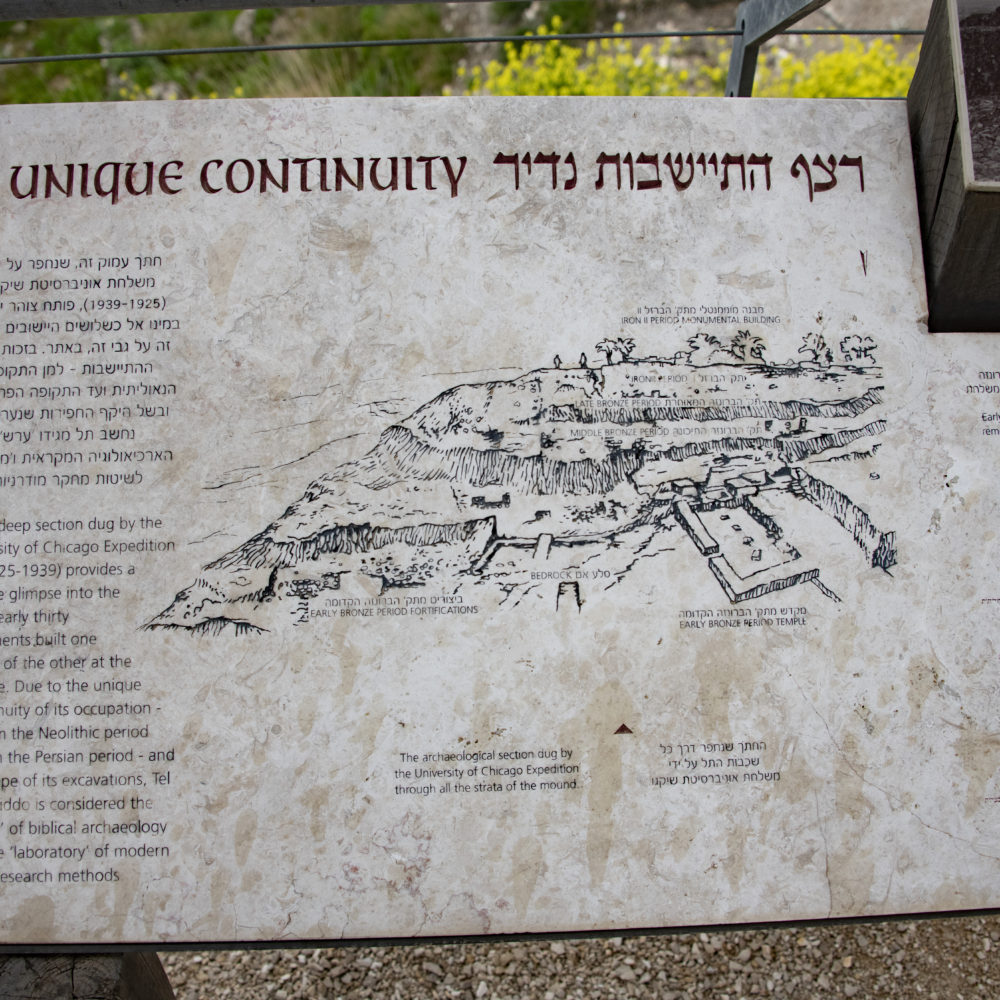 UNIQUE CONTINUITY רצף התיישבות נדיר
חתך עמוק זה, שנחפר על
משלחת אוניברסיטת שיקו
(1939-1925), פותח צוהר
במינו אל כשלושים היישובים
זה על גבי זה, באתר. בזכות
ההתיישבות - למן התקופ
הנאוליתית ועד התקופה הפר
ובשל היקף החפירות שנער
נחשב תל מגידו 'ערש'
הארכיאולוגיה המקראית ו'מ
לשיטות מחקר מודרניות
deep section dug by the
sity of Chicago Expedition
25-1939) provides a
e glimpse into the
early thirty
ments built one
of the other at the
e. Due to the unique
nuity of its occupation -
n the Neolithic period
h the Persian period - and
pe of its excavations, Tel
iddo is considered the
' of biblical archaeology
e 'laboratory' of modern
esearch methods
מבנה מונומנטלי מתק' הברזל II
IRON II PERIOD MONUMENTAL BUILDING
IRON I PERIOD תק' הברזל I
LATE BRONZE PERIOD תק' הברונזה המאוחרת
MIDDLE BRONZE PERIOD תק' הברונזה התיכונה
BEDROCK סלע אם
ביצורים מתק' הברונזה הקדומה
EARLY BRONZE PERIOD FORTIFICATIONS
מקדש מתק' הברונזה הקדומה
EARLY BRONZE PERIOD TEMPLE
The archaeological section dug by
the University of Chicago Expedition
through all the strata of the mound.
החתך שנחפר דרך כל
שכבות התל על-ידי
משלחת אוניברסיטת שיקגו
רונזה
משלחת
Early
rem